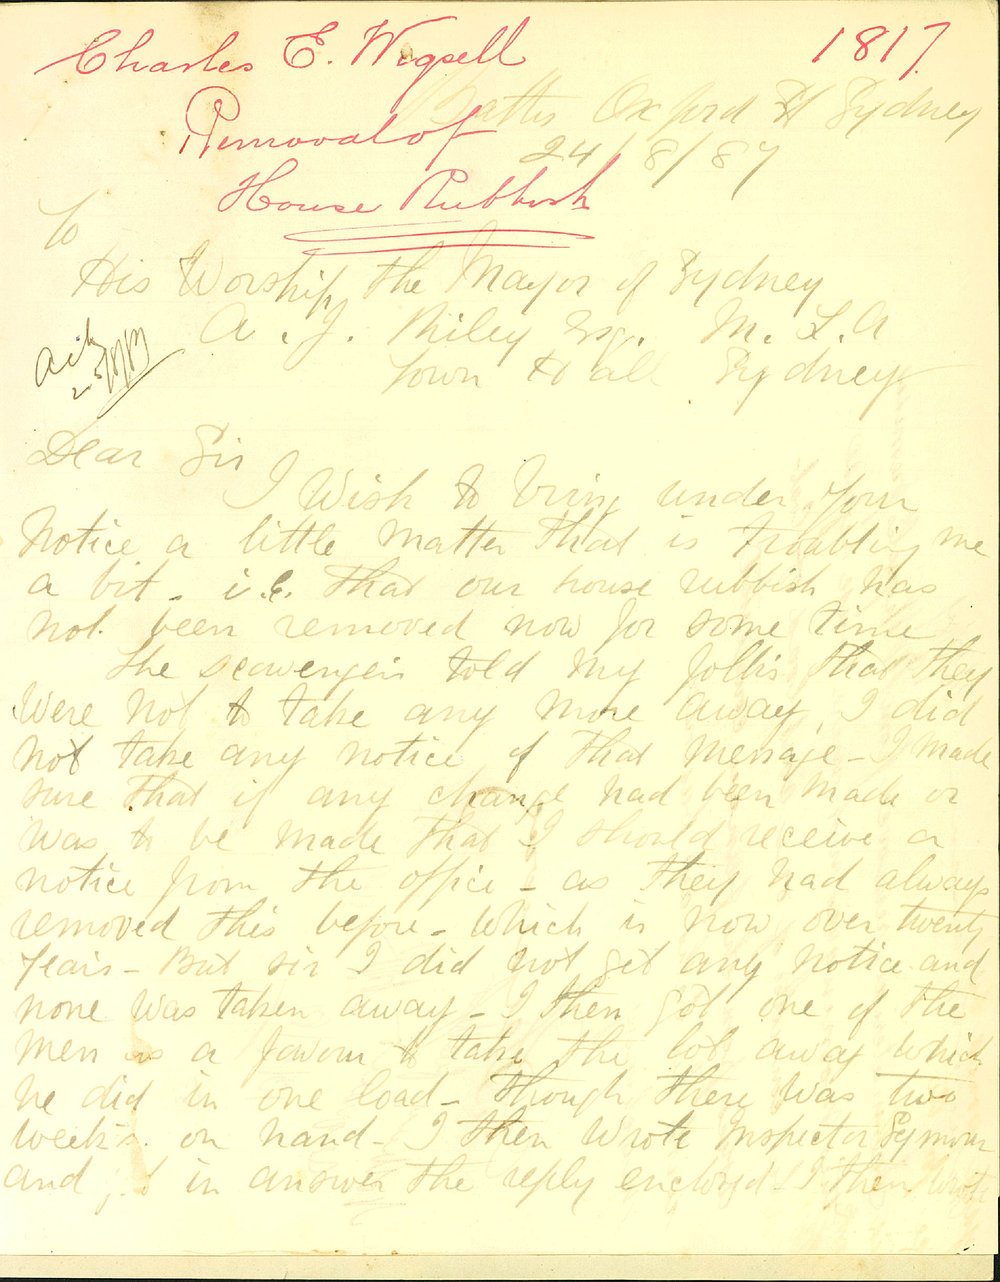 Charles E. Wigzell 1817.
Baths Oxford St Sydney
Removal of
24/8/87
House Rubbish
To
His Worship the Mayor of Sydney
A. J. Riley Esq. M. L. A
Town Hall Sydney
Ack
25/8/87
Dear Sir
I Wish to bring under your
Notice a little matter that is troubling me
a bit - i.e. that our house rubbish has
not been removed now for some time
The scavengers told my folks that they
were not to take any more away, I did
not take any notice of that message - I made
sure that if any change had been made or
was to be made that I should receive a
notice from the office - as they had always
removed this before - which is now over twenty
years - But sir I did not get any notice and
none was taken away - I then got one of the
men as a favour to take the lot away which
he did in one load - though there was two
weeks on hand - I then wrote Inspector Seymour
and got in answer the reply enclosed - I then wrote